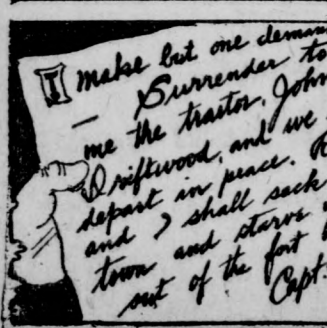 I make but one deman
— Surrender to
me the traitor, John
Driftwood, and we
depart in peace. R
and I shall sack
town and starve
out of the fort
Capt